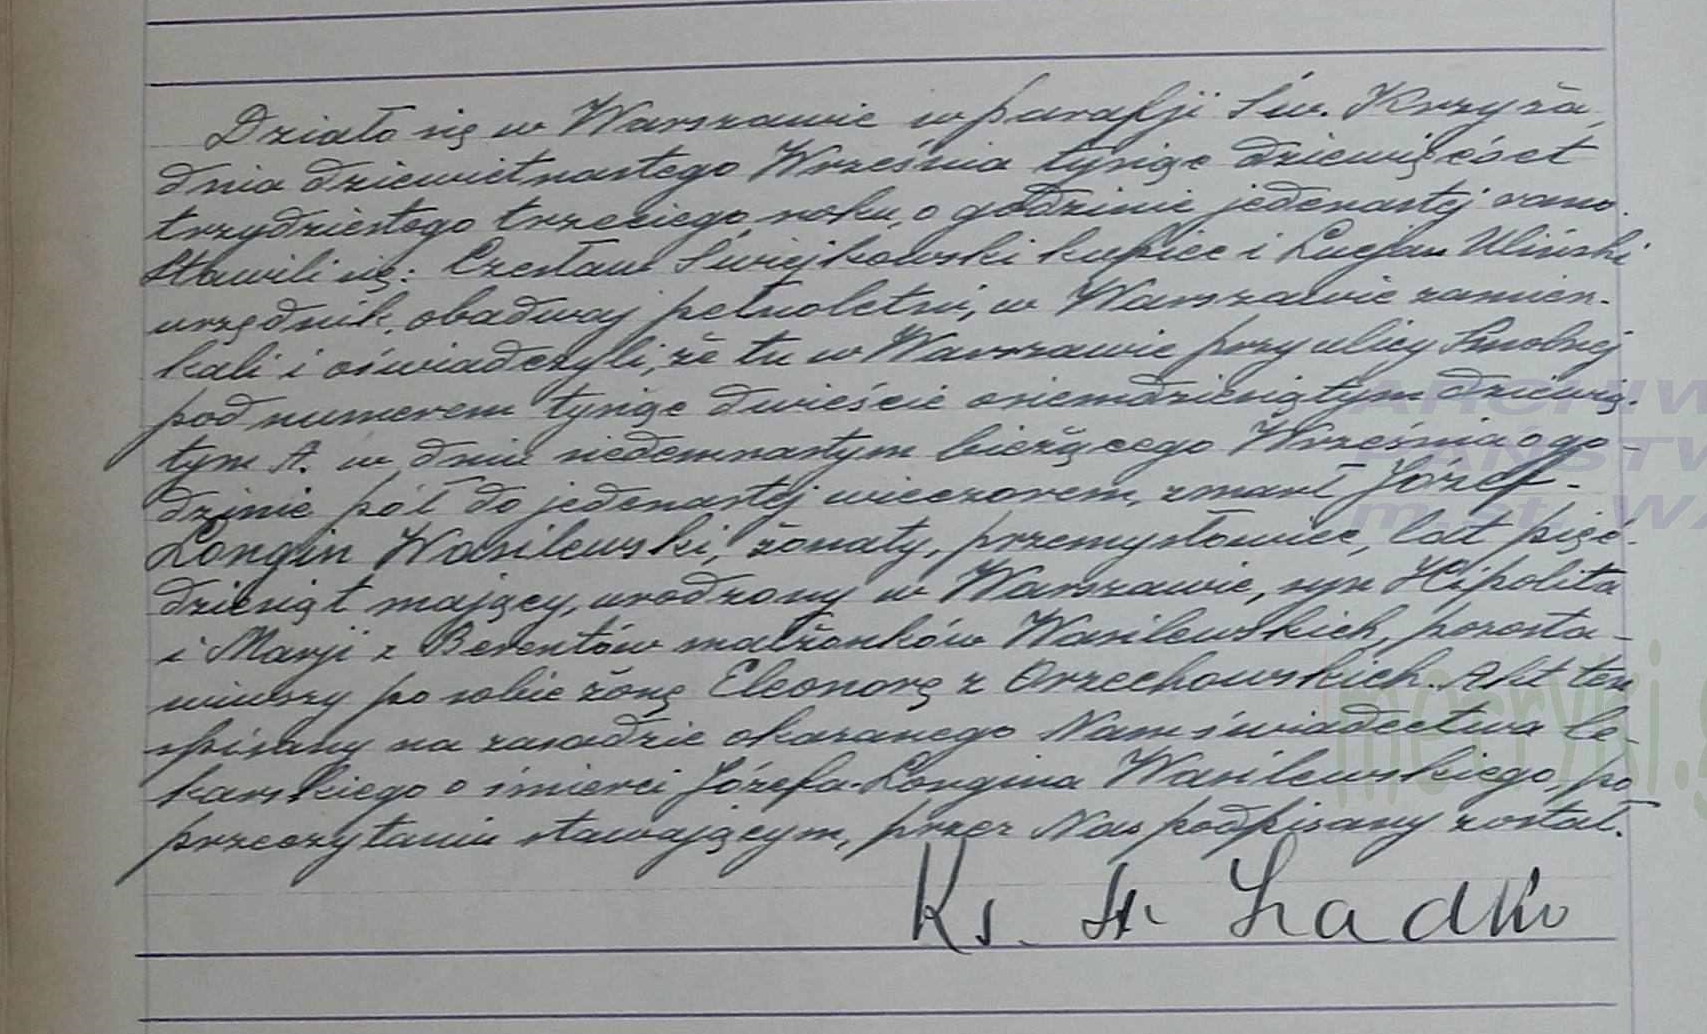 Działo się w Warszawie w parafji Św. Krzyża,
dnia dziewiętnastego Września tysiąc dziewięćset
trzydziestego trzeciego roku, o godzinie jedenastej rano.
Stawili się: Czesław Świejkowski kupiec i Lucjan Uliński
urzędnik, obadwaj pełnoletni, w Warszawie zamiesz-
kali i oświadczyli, że tu w Warszawie przy ulicy Smolnej
pod numerem tysiąc dwieście osiemdziesiątym dziewią-
tym A. w dniu siedemnastym bieżącego Września o go-
dzinie pół do jedenastej wieczorem, zmarł Józef-
Longin Wasilewski, żonaty, przemysłowiec, lat pięć-
dziesiąt mający, urodzony w Warszawie, syn Hipolita
i Marji z Berentów małżonków Wasilewskich, pozosta-
wiwszy po sobie żonę Eleonorę z Orzechowskich. Akt ten
spisany na zasadzie okazanego Nam świadectwa le-
karskiego o śmierci Józefa-Longina Wasilewskiego, po
przeczytaniu stawającym, przez Nas podpisany został.
Ks. St. Ladko
ARCHIW
PAŃSTW
m.st. WA
metryki.g